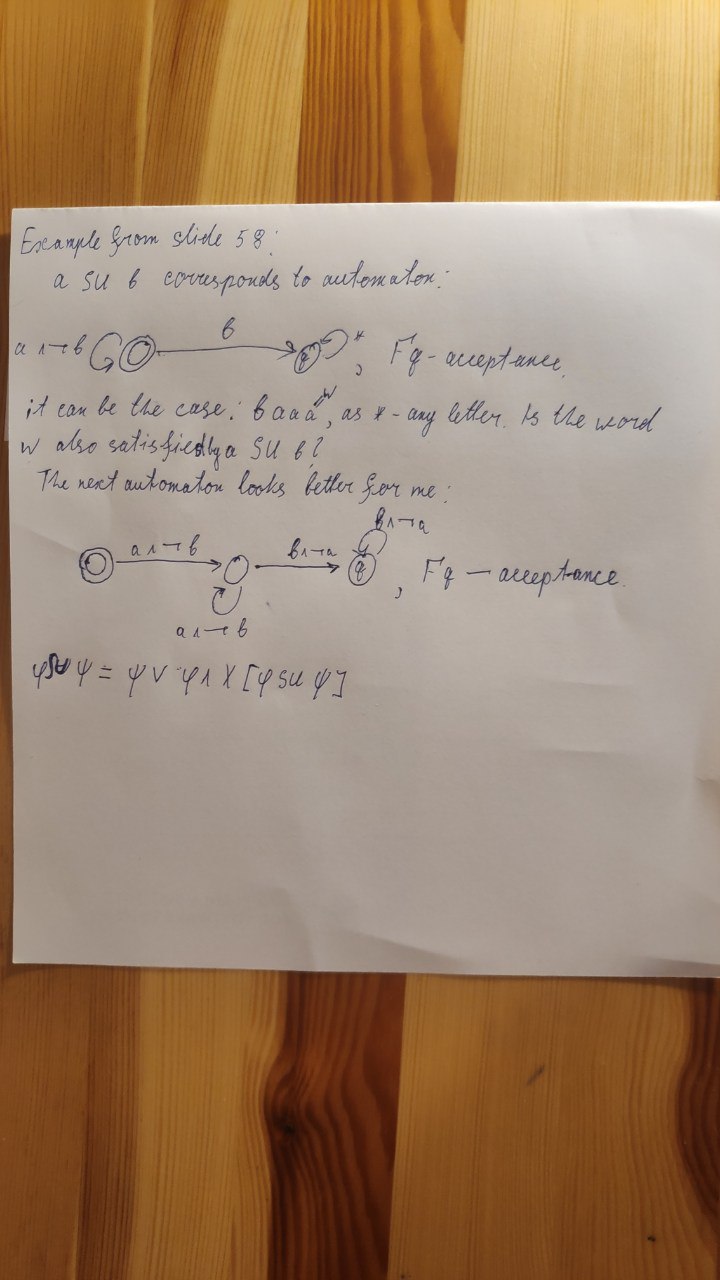 Example from slide 58:
a SU b corresponds to automaton:
a ∧ ¬ b b q *, Fq - acceptance.
it can be the case: b a a a "w", as * - any letter. Is the word
w also satisfied by a SU b?
The next automaton looks better for me:
b ∧ ¬ a
a ∧ ¬ b b ∧ ¬ a q , Fq — acceptance.
a ∧ ¬ b
φ SU ψ = ψ ∨ φ ∧ X [φ SU ψ]